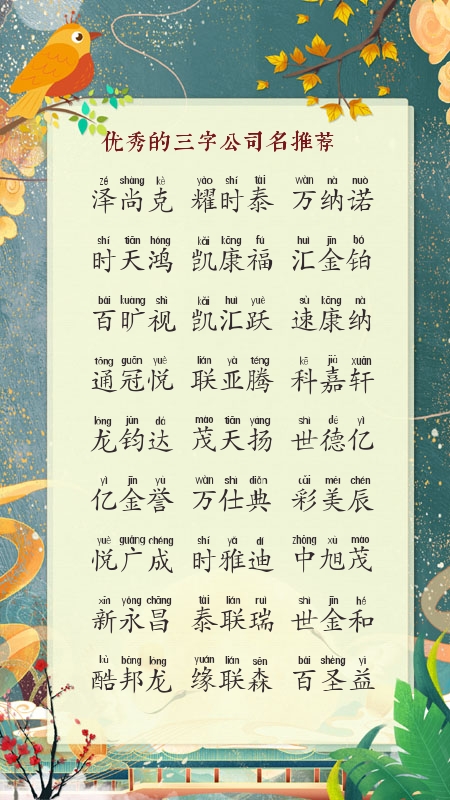 优秀的三字公司名推荐
zé shàng kè yào shí tài wàn nà nuò
泽尚克 耀时泰 万纳诺
shí tiān hóng kǎi kāng fú huì jīn bó
时天鸿 凯康福 汇金铂
bǎi kuàng shì kǎi huì yuè sù kāng nà
百旷视 凯汇跃 速康纳
tōng guān yuè lián yà téng kē jiā xuān
通冠悦 联亚腾 科嘉轩
lóng jūn dá mào tiān yáng shì dé yì
龙钧达 茂天扬 世德亿
yì jīn yù wàn shì diǎn cǎi měi chén
亿金誉 万仕典 彩美辰
yuè guǎng chéng shí yǎ dí zhōng xù mào
悦广成 时雅迪 中旭茂
xīn yǒng chāng tài lián ruì shì jīn hé
新永昌 泰联瑞 世金和
kù bāng lóng yuán lián sēn bǎi shèng yì
酷邦龙 缘联森 百圣益